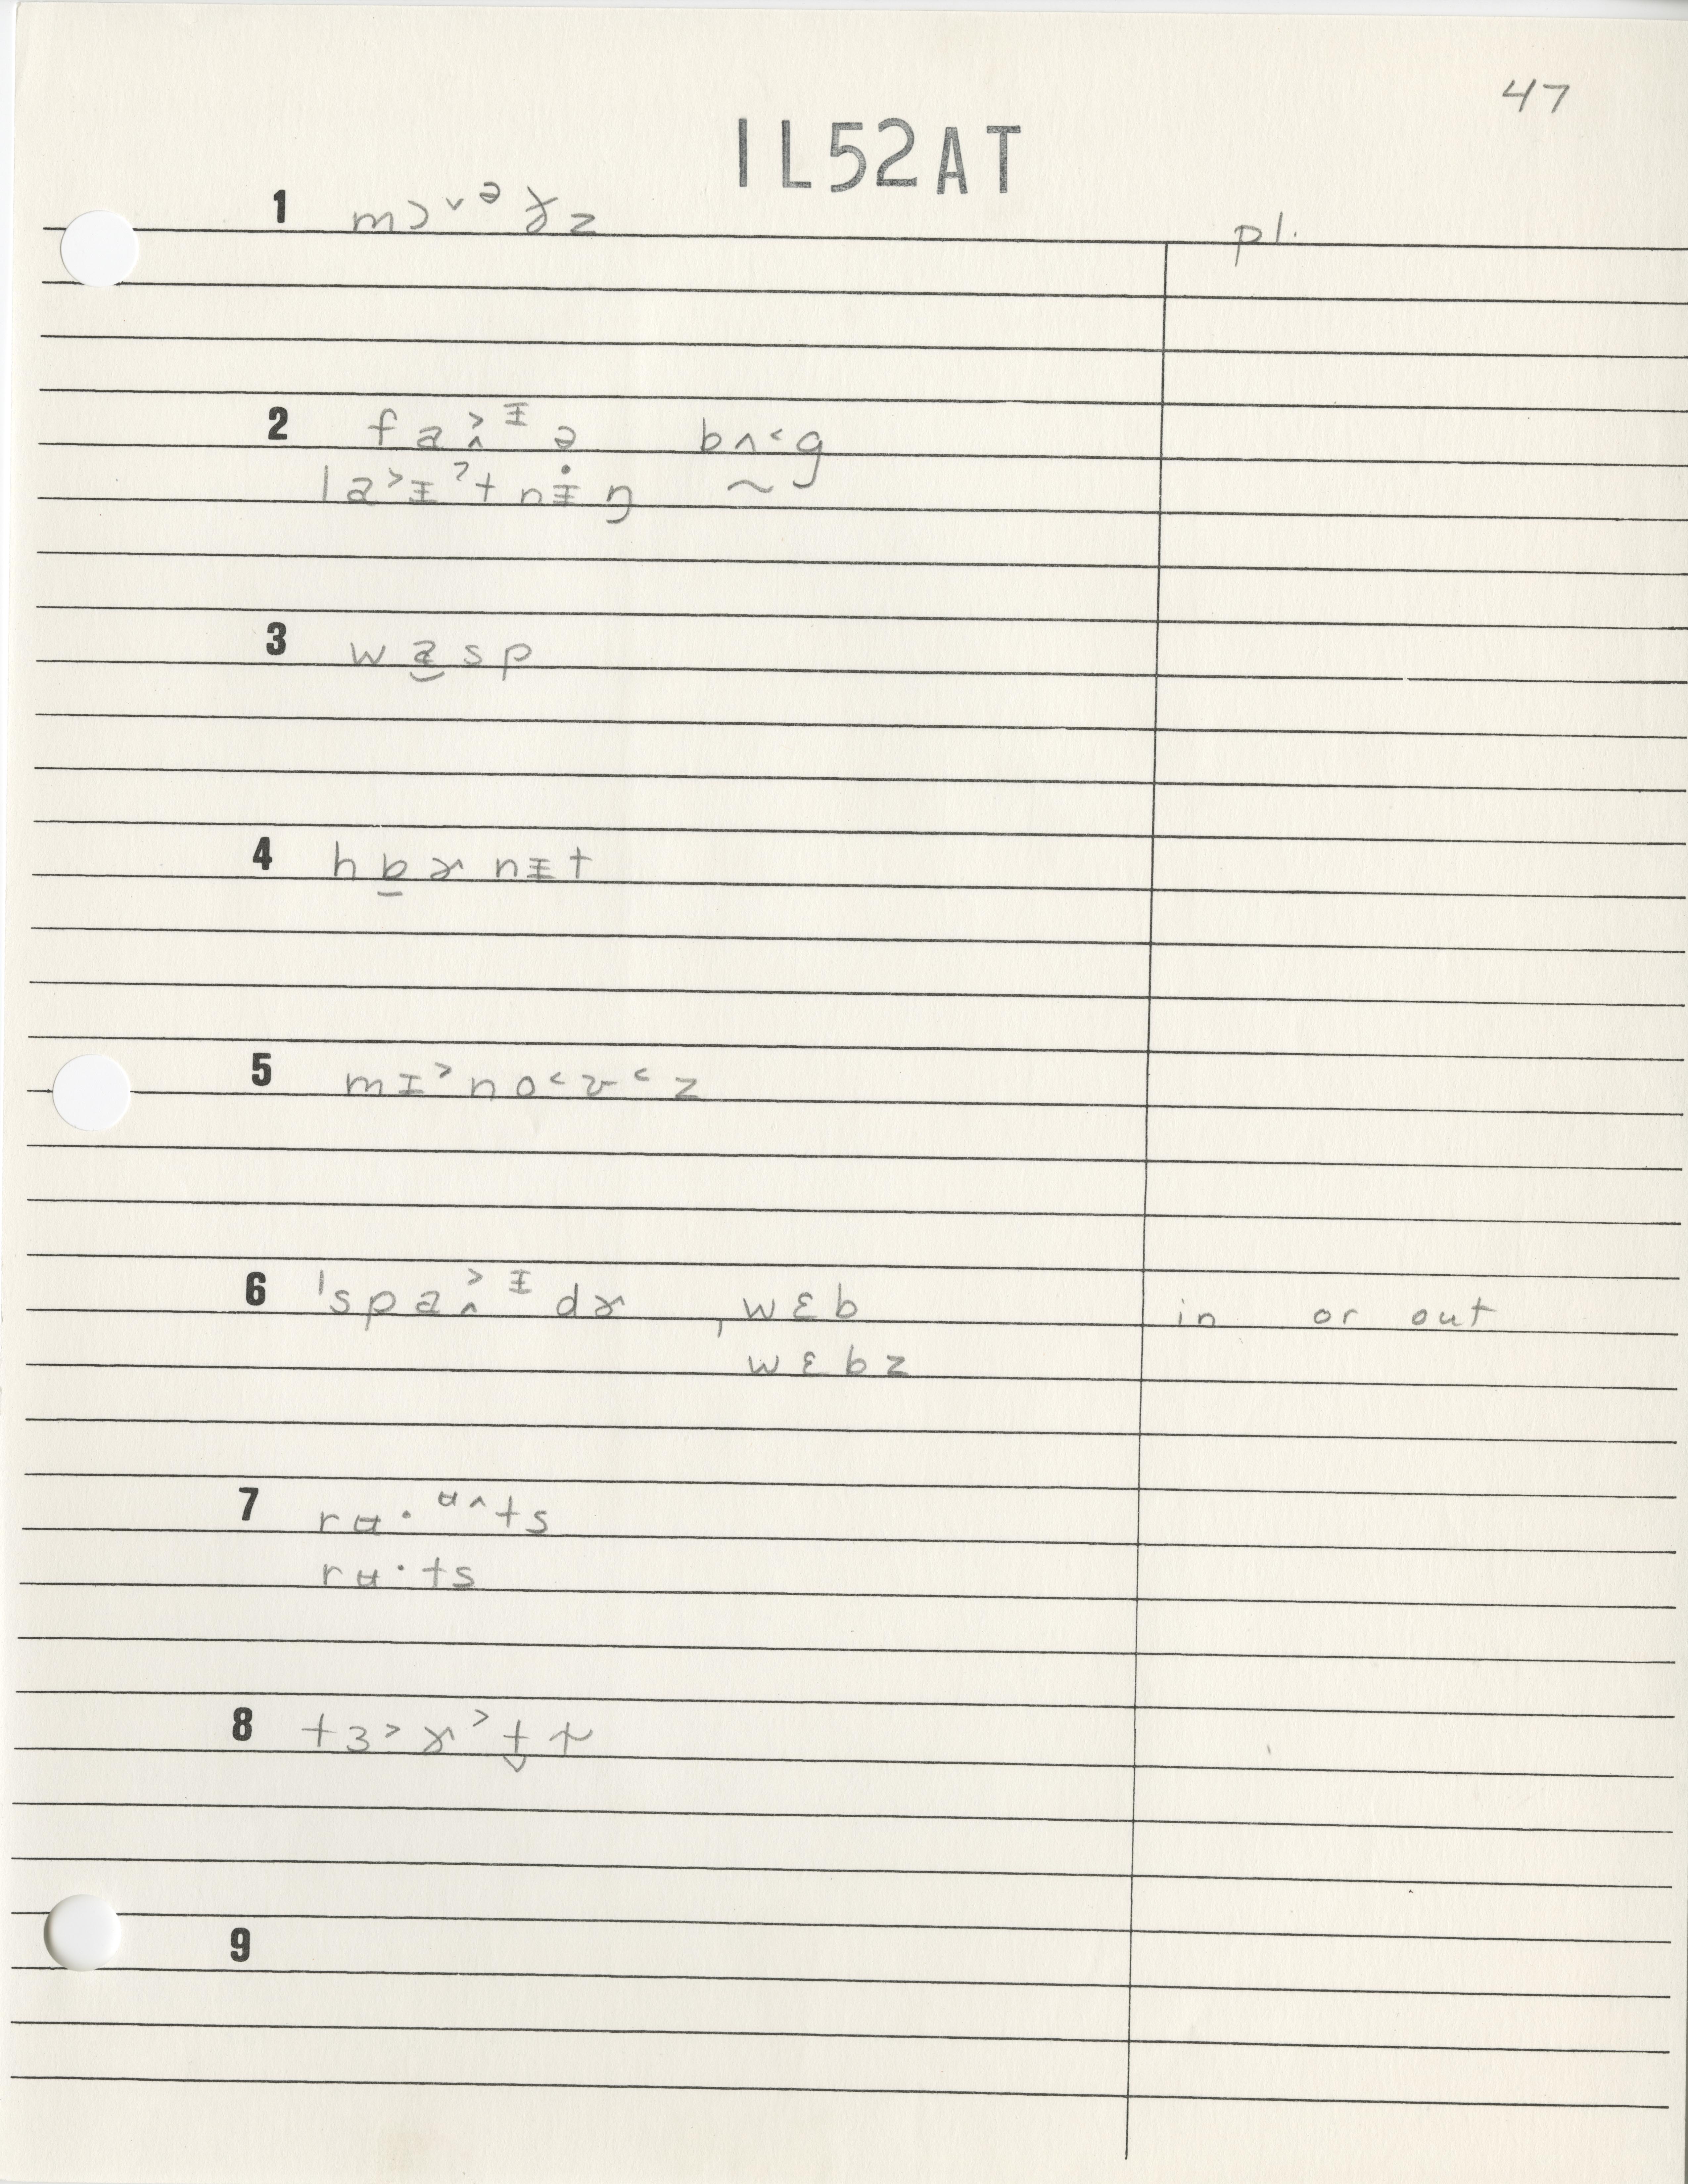 47
1L52AT
1 mɔ˅ᵊɚ̸z pl.
2 fa˰˃ᵻə bʌ˂g
la˃ᵻˀtnᵻ̇ŋ ~
3 wa̮sp
4 hɒ̱ɚnᵻt
5 mɪ˃no˂ʊ˂z
6 ˈspa˰˃ᵻdɚ ˌwɛb in or out
wɛbz
7 rʉ·ᶶ˄ts
rʉ·ts
8 tɜ˃ɚ˃t̬l̩
9